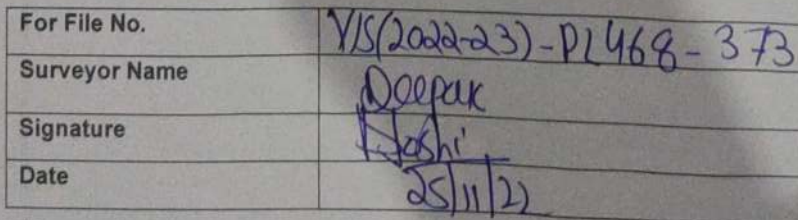 For File No. VIS(2022-23)-PL468-373
Surveyor Name Deepak
Signature Joshi
Date 25/11/22